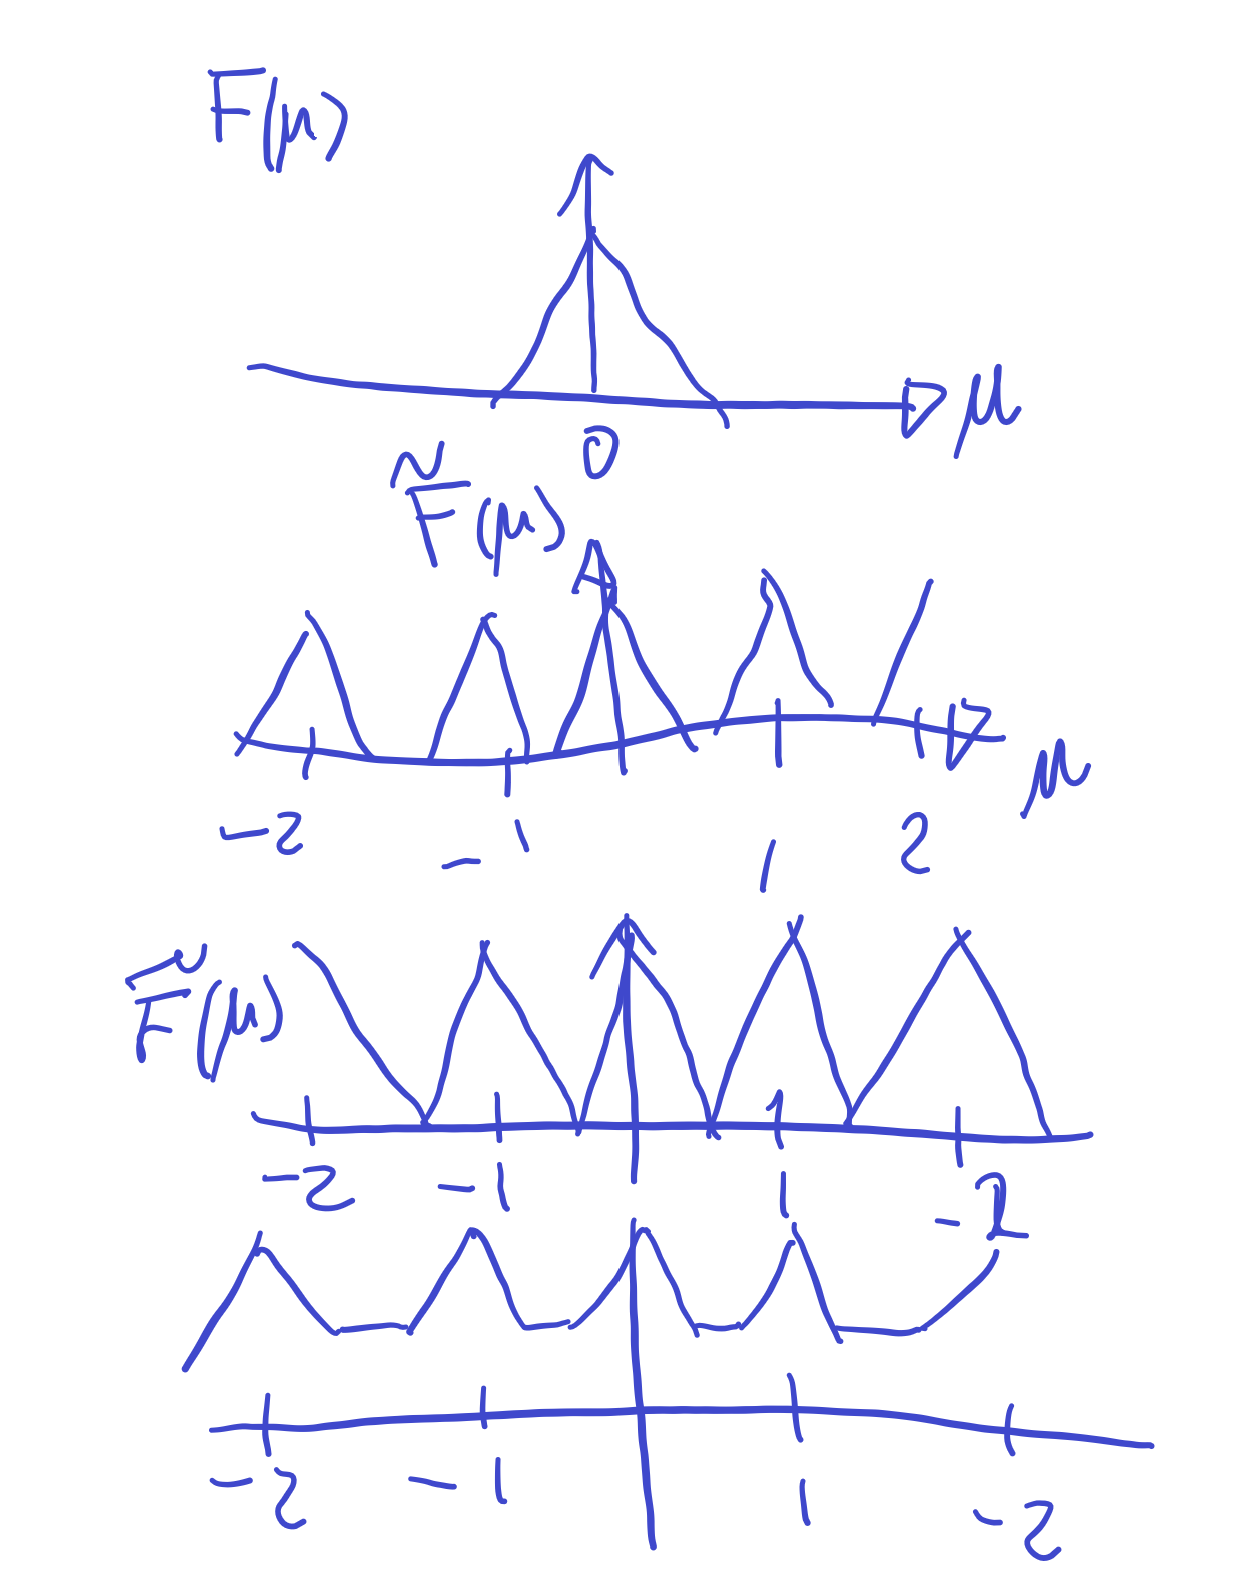 F(μ)
μ
0
F̃(μ)
μ
-2 -1 1 2
F̃(μ)
-2 -1 1 -2
-2 -1 1 -2